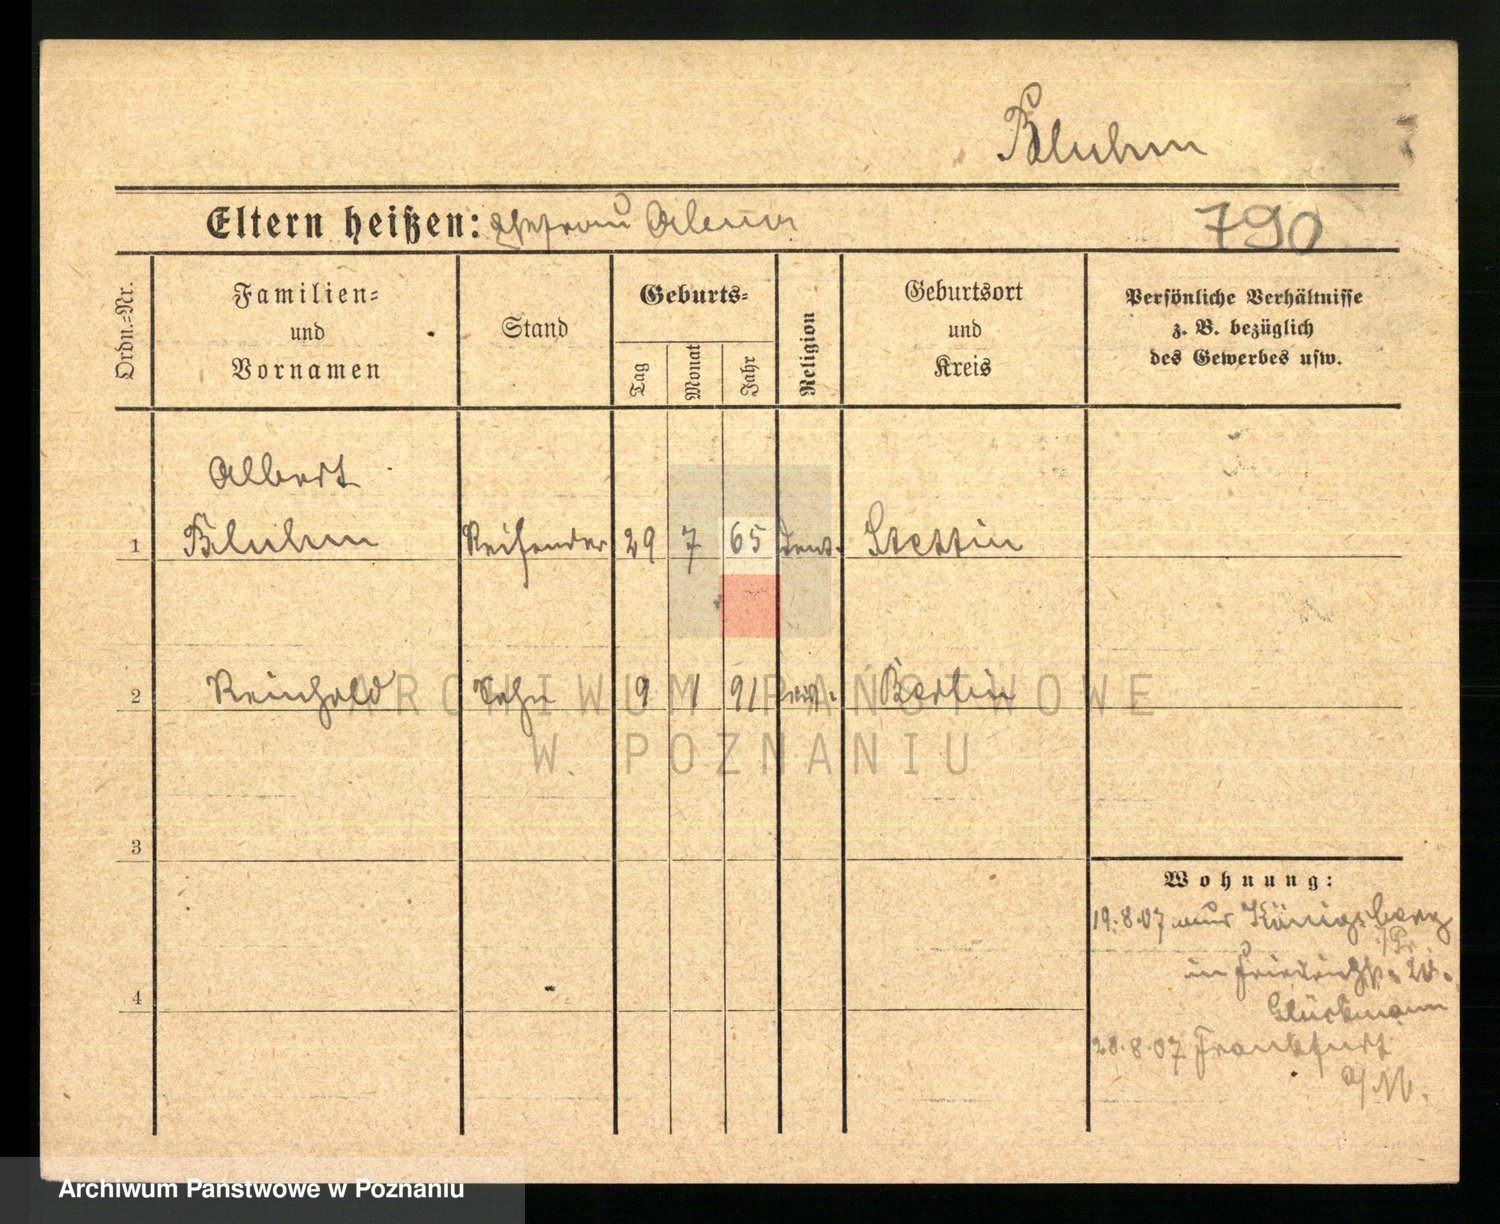 Bluhm
Eltern heißen: Ehefrau
790
Ordn.-Nr.
Familien-
und
Vornamen
Stand
Geburts-
Tag
Monat
Jahr
Religion
Geburtsort
und
Kreis
Persönliche Verhältnisse
z. B. bezüglich
des Gewerbes usw.
Albert
1 Bluhm Reisender 29 7 65 Stettin
2 Reinhold Sohn 9 1 91 Berlin
3
4
Wohnung:
19.8.07 aus Königsberg
i/Pr
in Friedrichstr. 20.
Glückmann
28.8.07 Frankfurt
a/M.
ARCHIWUM PAŃSTWOWE
W POZNANIU
Archiwum Państwowe w Poznaniu